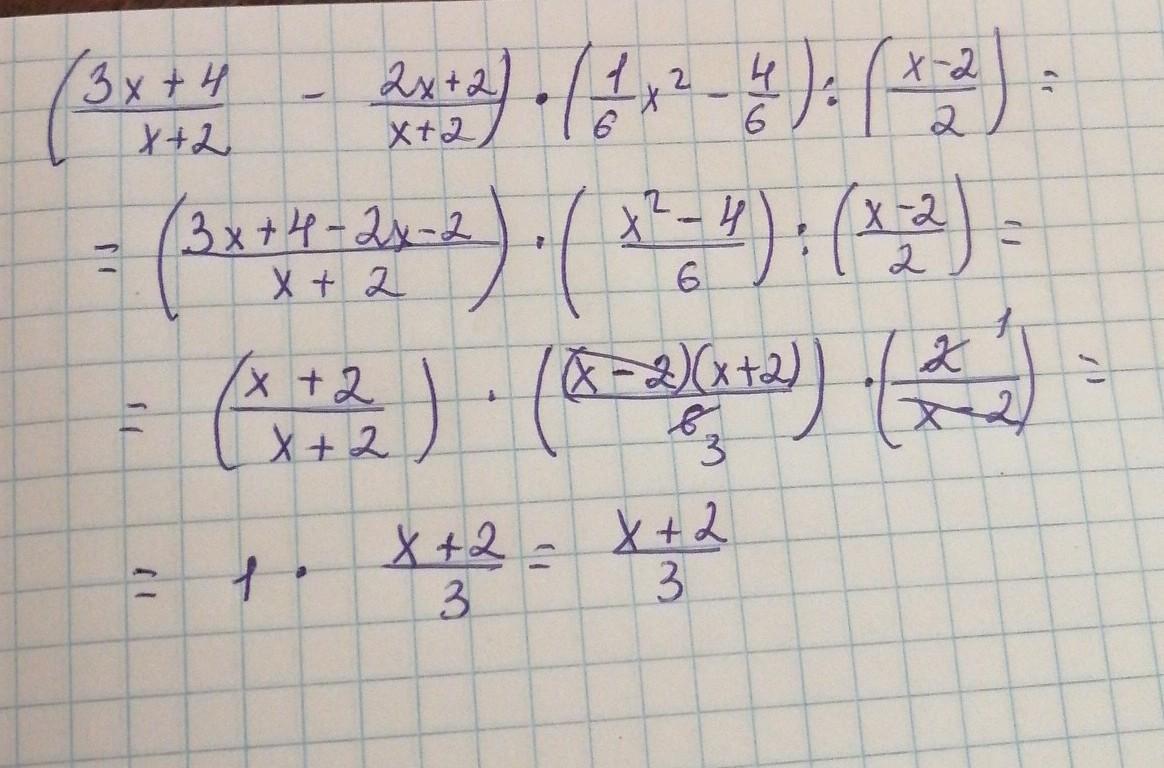 (3x+4/x+2 - 2x+2/x+2) · (1/6 x² - 4/6) : (x-2/2) =
= (3x+4-2x-2/x+2) · (x²-4/6) : (x-2/2) =
= (x+2/x+2) · ((x-2)(x+2)/6 3) · (2 1/x-2) =
= 1 · x+2/3 = x+2/3